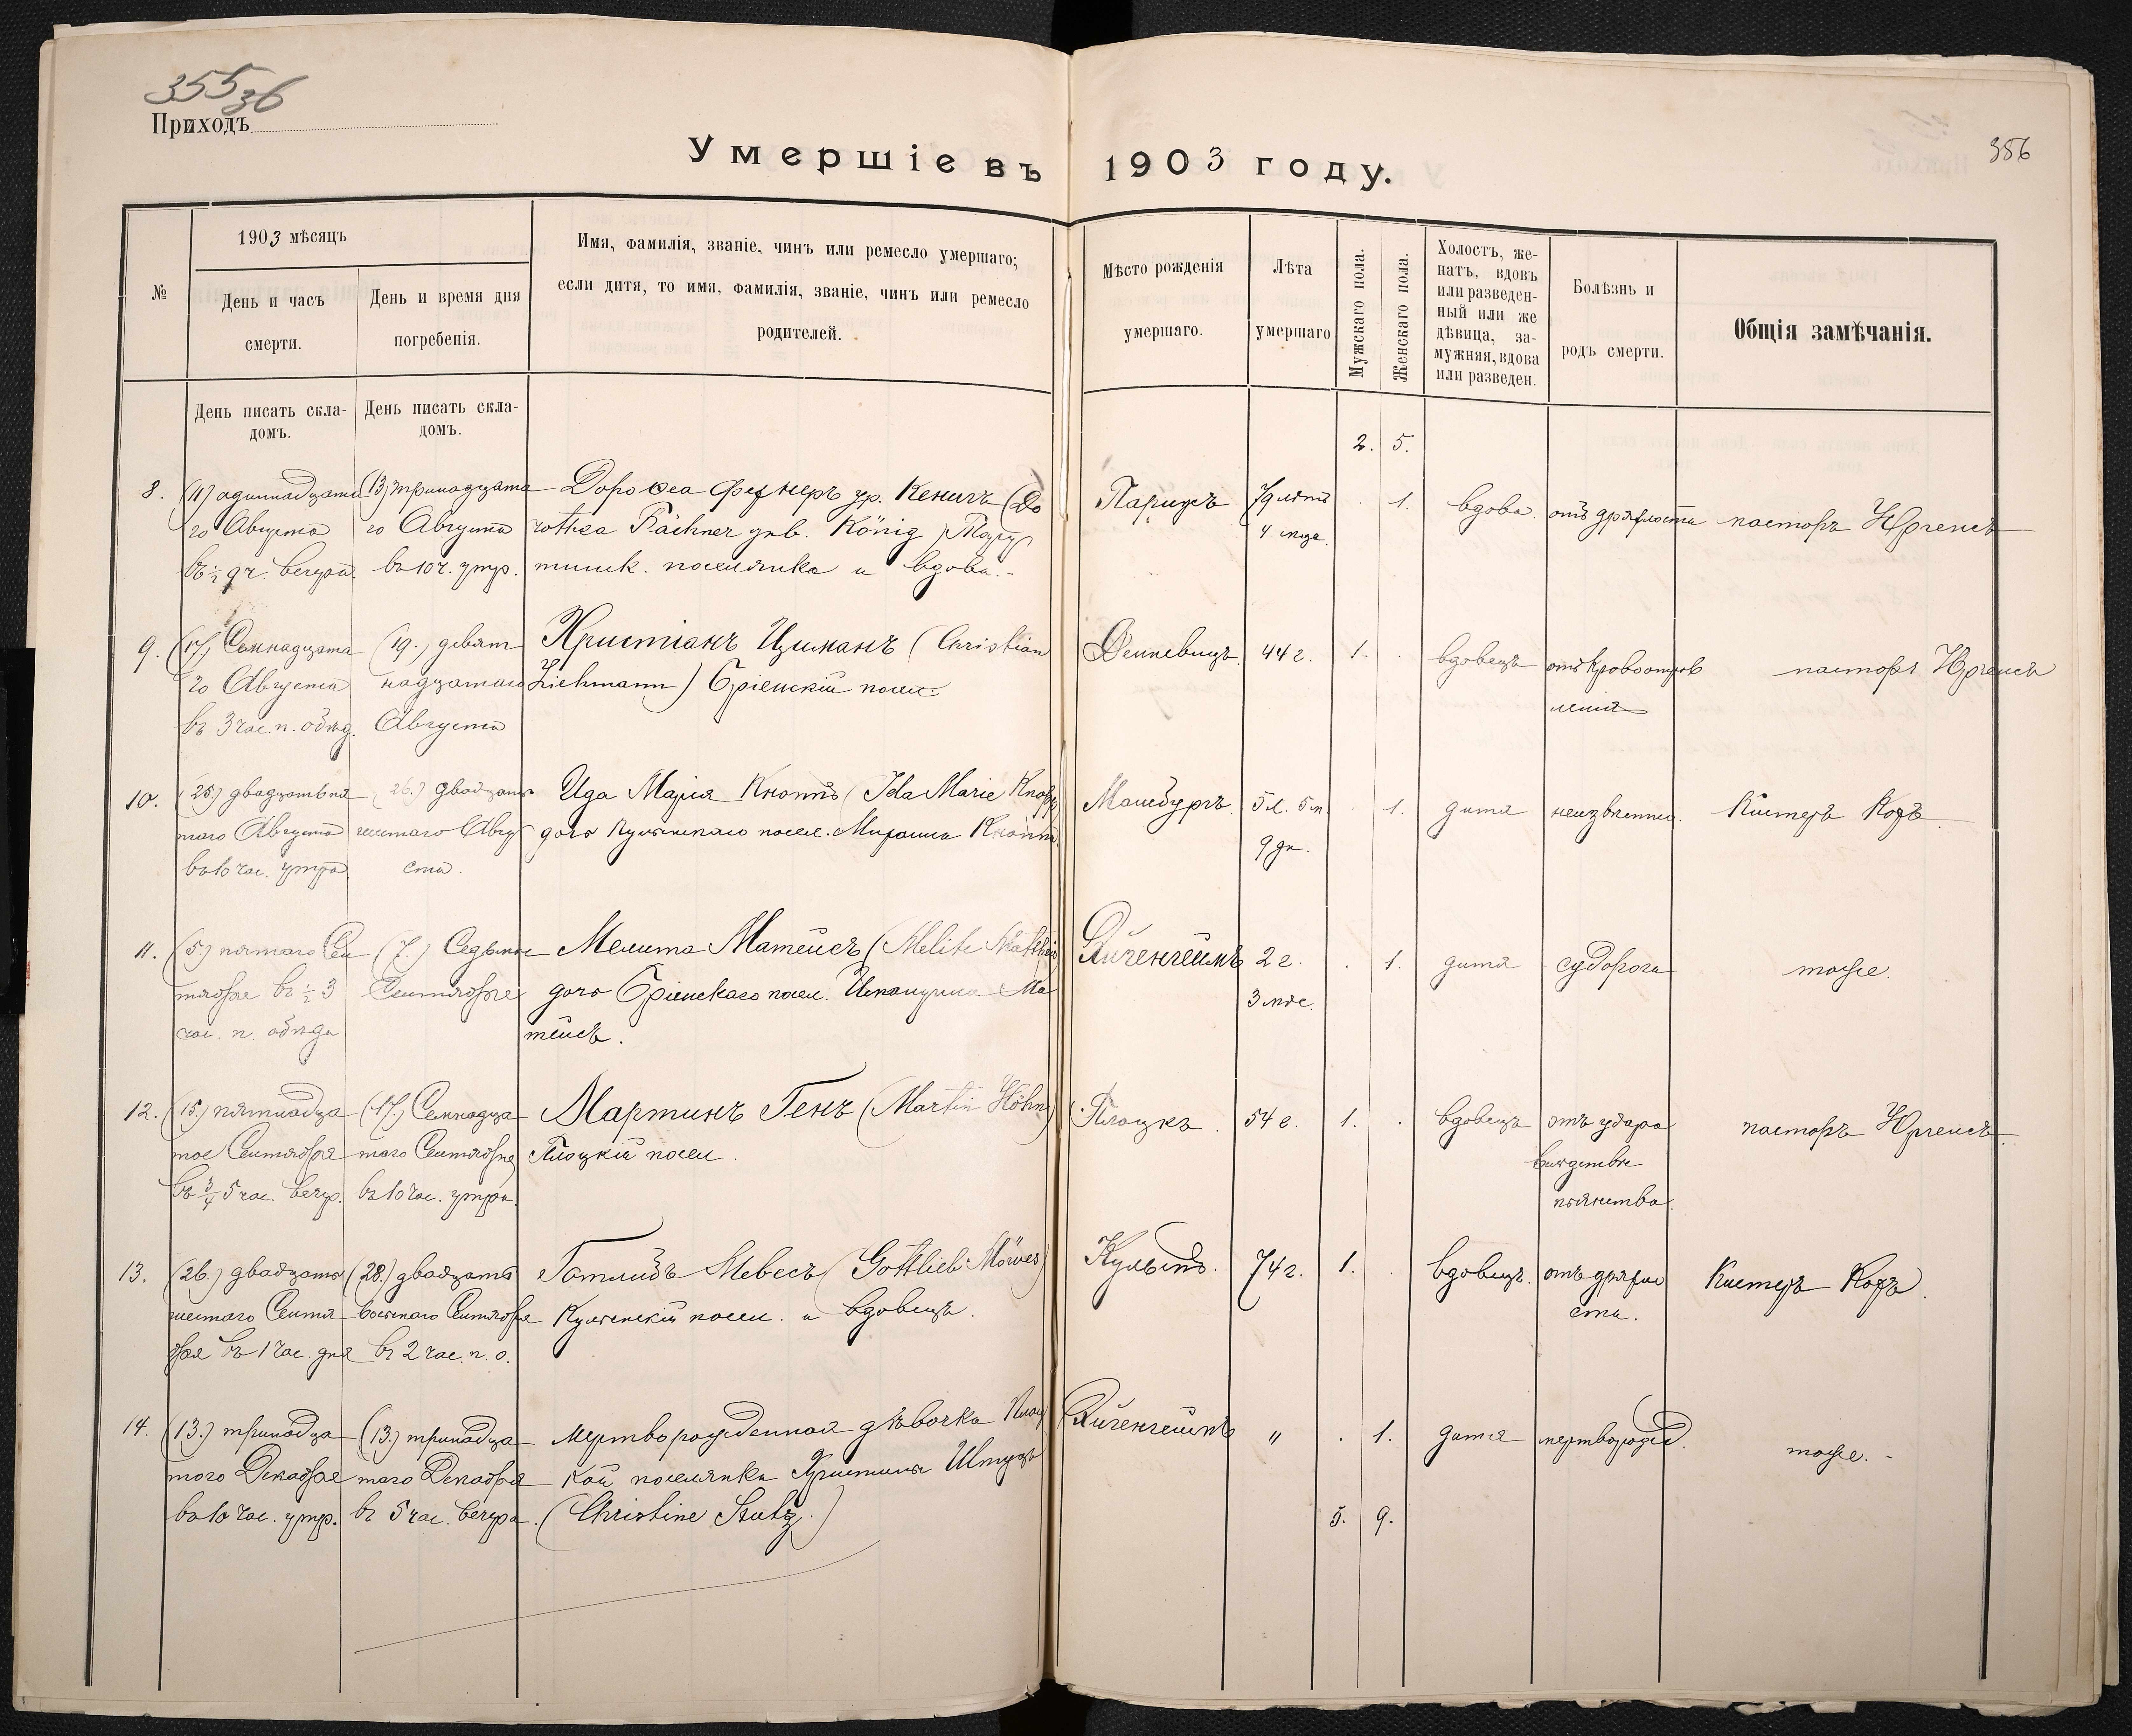 355 36
Приходъ
Умершіе въ 1903 году.
356
№
1903 мѣсяцъ
День и часъ смерти.
День и время дня погребенія.
Имя, фамилія, званіе, чинъ или ремесло умершаго;
если дитя, то имя, фамилія, званіе, чинъ или ремесло
родителей.
Мѣсто рожденія
умершаго.
Лѣта
умершаго
Мужскаго пола.
Женскаго пола.
Холостъ, же-
натъ, вдовъ
или разведен-
ный или же
дѣвица, за-
мужняя, вдова
или разведен.
Болѣзнь и
родъ смерти.
Общія замѣчанія.
День писать скла-
домъ.
День писать скла-
домъ.
2. 5.
8.
(11) одиннадцата
го Августа
въ ½ 9 ч. вечера.
(13) тринадцата
го Августа
въ 10 ч. утр.
Доротеа Фехнеръ ур. Кенигъ (Do
rothea Fächner geb. König)
поселянка и вдова.
Парижъ
79 лѣтъ
4 мѣс.
1.
вдова.
отъ дряхлости
пасторъ Юргенсъ
9.
(17) Семнадцата
го Августа
въ 3 час. п. обѣд.
(19.) девят
надцатаго
Августа
Христіанъ Цикманъ (Christian
Ziekmann) Бріенскій посел.
Денневицъ
44 г.
1.
вдовецъ
отъ кровоотрав
ленія
пасторъ Юргенсъ
10.
(25) двадцать пя
таго Августа
въ 10 час. утра.
(26.) двадцать
шестаго Авгу
ста.
Ида Марія Кноппъ (Ida Marie Knopp)
дочь Кульмскаго посел. Кноппъ.
5 л. 5 м.
9 дн.
1.
дитя
неизвѣстно.
Кистеръ Кохъ
11.
(5) пятаго Сен
тября въ ½ 3
час. п. обѣда
(7.) Седьмое
Сентября
Мелита Матейсъ (Melite Mattheis)
дочь Бріенскаго посел. Ма
тейсъ.
Эйгенгеймъ
2 г.
3 мѣс.
1.
дитя
судорога
тоже.
12.
(15.) пятнадца
тое Сентября
въ ¾ 5 час. вечер.
(17.) Семнадца
таго Сентября
въ 10 час. утра.
Мартинъ Генъ (Martin Höhn)
Плоцкій посел.
Плоцкъ.
54 г.
1.
вдовецъ
отъ удара
вслѣдствіе
пьянства.
пасторъ Юргенсъ.
13.
(26.) двадцать
шестаго Сентя
бря въ 1 час. дня
(28.) двадцать
восьмаго Сентября
въ 2 час. п. о.
Готлибъ Мевесъ (Gottlieb Möwes)
Кульмскій посел. и вдовецъ.
Кульмъ.
74 г.
1.
вдовецъ.
отъ дряхло
сти.
Кистеръ Кохъ.
14.
(13.) тринадца
таго Декабря
въ 10 час. утр.
(13.) тринадца
таго Декабря
въ 5 час. вечера.
Мертворожденная дѣвочка Плоц
кой поселянки Христины Штуцъ
(Christine Stutz.)
Эйгенгеймъ
"
1.
дитя
мертворожд.
тоже. -
5. 9.